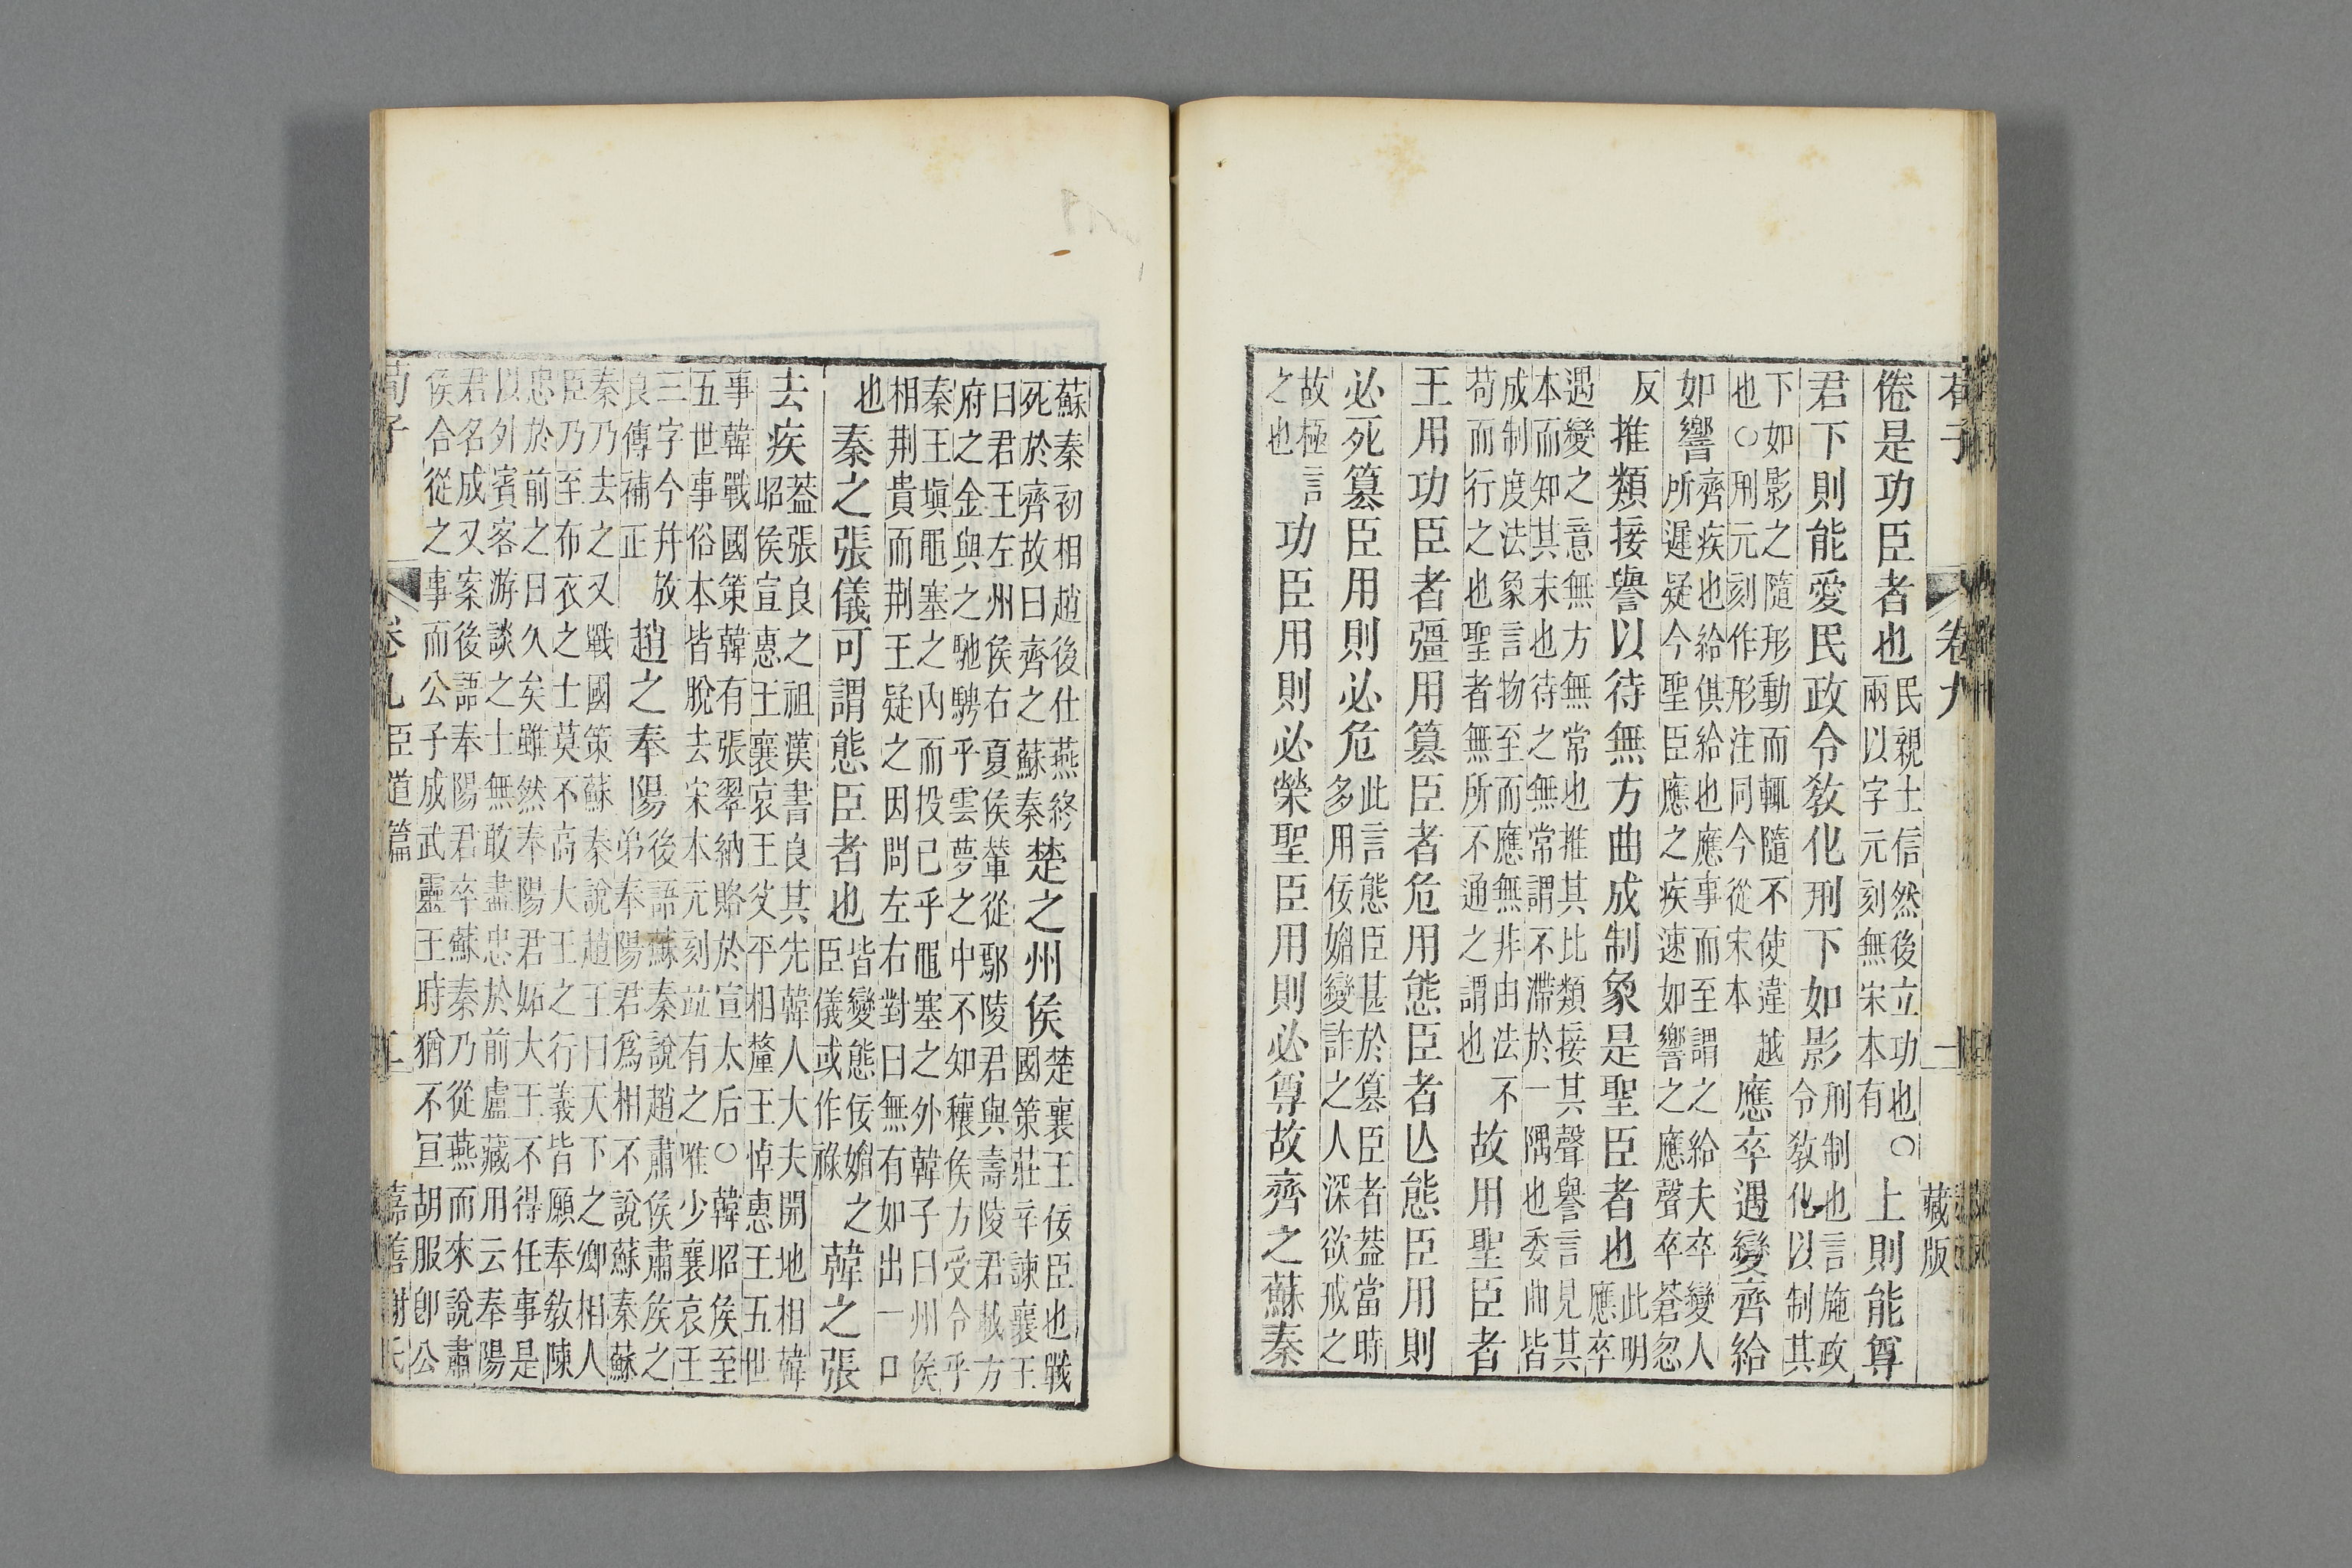 荀子 卷九 一 藏版
倦是功臣者也民親士信然後立功也○兩以字元刻無宋本有上則能尊
君下則能愛民政令教化刑下如影刑制也言施政令教化以制其
下如影之隨形動而輒隨不使違越也○刑元刻作形注同今從宋本應卒遇變齊給
如響齊疾也給供給也應事而至謂之給夫卒變人所遲疑今聖臣應之疾速如響之應聲卒蒼忽
反推類接譽以待無方曲成制象是聖臣者也此明應卒
遇變之意無方無常也推其比類接其聲譽言見其本而知其末也待之無常謂不滯於一隅也委曲皆
成制度法象言物至而應無非由法不苟而行之也聖者無所不通之謂也故用聖臣者
王用功臣者彊用篡臣者危用態臣者亾態臣用則
必死篡臣用則必危此言態臣甚於篡臣者蓋當時多用佞媚變詐之人深欲戒之
故極言之也功臣用則必榮聖臣用則必尊故齊之蘇秦
蘇秦初相趙後仕燕終死於齊故曰齊之蘇秦楚之州侯楚襄王佞臣也戰國策莊辛諫襄王
曰君王左州侯右夏侯輦從鄢陵君與壽陵君載方府之金與之馳騁乎雲夢之中不知穰侯方受令乎
秦王塡黽塞之內而投己乎黽塞之外韓子曰州侯相荆貴而荆王疑之因問左右對曰無有如出一口
也秦之張儀可謂態臣者也皆變態佞媚之臣儀或作祿韓之張
去疾蓋張良之祖漢書良其先韓人大夫開地相韓昭侯宣惠王襄哀王父平相釐王悼惠王五世
事韓戰國策韓有張翠納賂於宣太后○韓昭侯至五世事俗本皆脫去宋本元刻竝有之唯少襄哀王
三字今幷放良傳補正趙之奉陽後語蘇秦說趙肅侯肅侯之弟奉陽君爲相不說蘇秦蘇
秦乃去之又戰國策蘇秦說趙王曰天下之卿相人臣乃至布衣之士莫不高大王之行義皆願奉教陳
忠於前之日久矣雖然奉陽君妬大王不得任事是以外賓客游談之士無敢盡忠於前盧藏用云奉陽
君名成又案後語奉陽君卒蘇秦乃從燕而來說肅侯合從之事而公子成武靈王時猶不宣胡服卽公
荀子 卷九臣道篇 二 嘉善謝氏